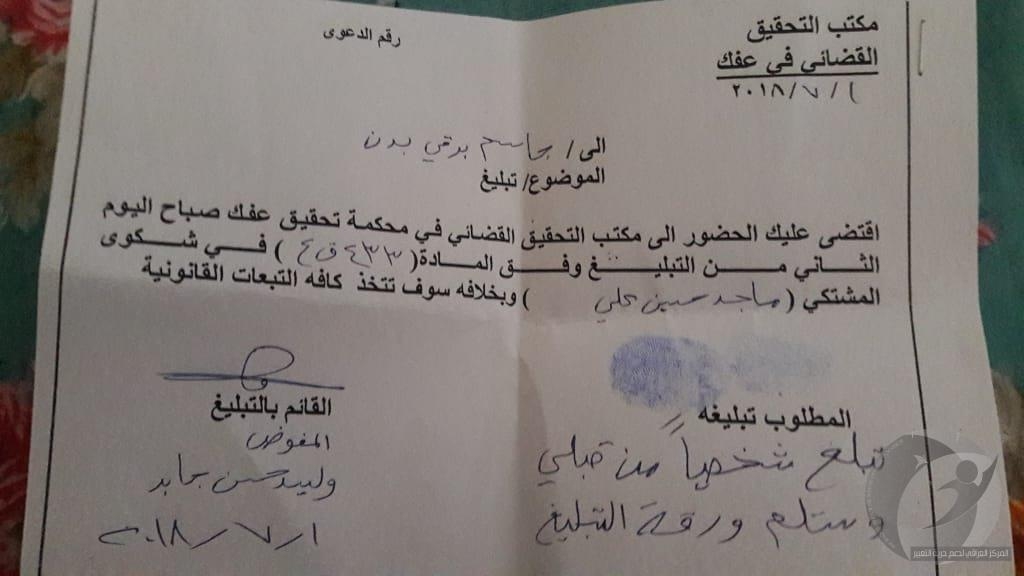 مكتب التحقيق
القضائي في عفك
٢٠١٨/٧/١
رقم الدعوى
الى / جاسم بدن
الموضوع/ تبليغ
اقتضى عليك الحضور الى مكتب التحقيق القضائي في محكمة تحقيق عفك صباح اليوم
الثاني من التبليغ وفق المادة( ٤٣٣ ق ع ) في شكوى
المشتكي ( ماجد حسين علي ) وبخلافه سوف تتخذ كافه التبعات القانونية
المطلوب تبليغه
تبلغ شخصياً من قبلي
وستلم ورقة التبليغ
القائم بالتبليغ
المفوض
وليد حسن جابر
٢٠١٨/٧/١
المركز العراقي لدعم حرية التعبير